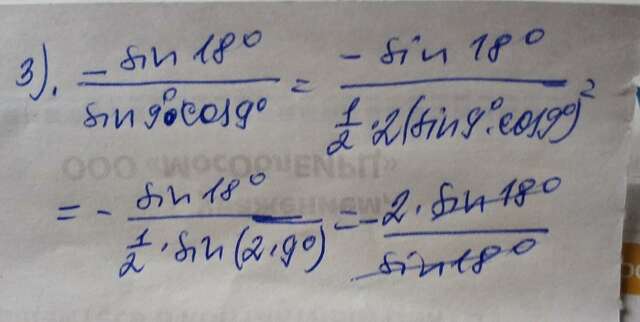 3). -sin 18° / sin 9° cos 9° = -sin 18° / ½ · 2(sin 9° · cos 9°) =
= - sin 18° / ½ · sin(2 · 9°) = - 2 · sin 18° / sin 18°
ООО «Мособлейрц»